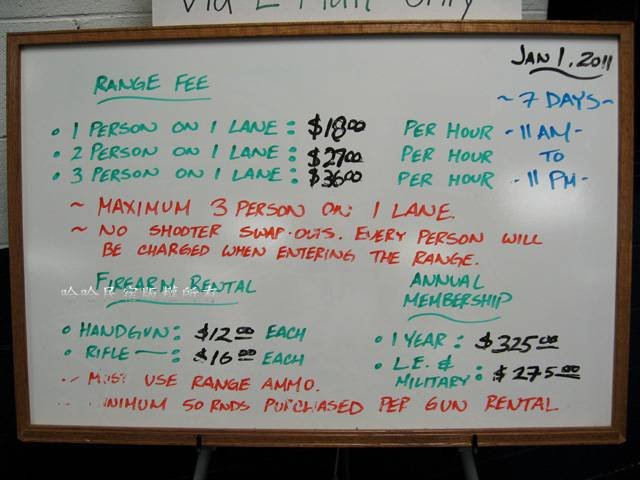 Via E-Mail Only
JAN 1, 2011
RANGE FEE
~ 7 DAYS ~
• 1 PERSON ON 1 LANE: $18.00 PER HOUR - 11 AM -
• 2 PERSON ON 1 LANE: $27.00 PER HOUR TO
• 3 PERSON ON 1 LANE: $36.00 PER HOUR - 11 PM -
~ MAXIMUM 3 PERSON ON 1 LANE.
~ NO SHOOTER SWAP-OUTS. EVERY PERSON WILL
BE CHARGED WHEN ENTERING THE RANGE.
FIREARM RENTAL
哈哈民宿版權所有
ANNUAL
MEMBERSHIP
• HANDGUN: $12.00 EACH
• RIFLE —: $16.00 EACH
• 1 YEAR: $325.00
• L.E. &
MILITARY: $275.00
~ MUST USE RANGE AMMO.
~ MINIMUM 50 RNDS PURCHASED PER GUN RENTAL